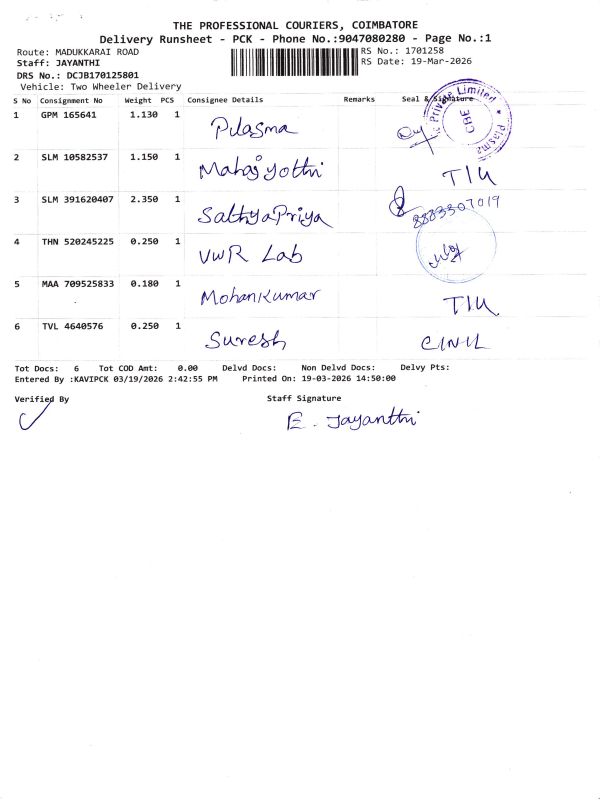 THE PROFESSIONAL COURIERS, COIMBATORE
Delivery Runsheet - PCK - Phone No.:9047080280 - Page No.:1
Route: MADUKKARAI ROAD
RS No.: 1701258
Staff: JAYANTHI
RS Date: 19-Mar-2026
DRS No.: DCJB170125801
Vehicle: Two Wheeler Delivery
S No Consignment No Weight PCS Consignee Details Remarks Seal & Signature
1 GPM 165641 1.130 1 Pilasma
Private Limited * Plasma
CBE
2 SLM 10582537 1.150 1 Mahajyothi TIU
3 SLM 391620407 2.350 1 SathyaPriya 8883307019
4 THN 520245225 0.250 1 VWR Lab
5 MAA 709525833 0.180 1 MohanKumar TIU
6 TVL 4640576 0.250 1 Suresh
Tot Docs: 6 Tot COD Amt: 0.00 Delvd Docs: Non Delvd Docs: Delvy Pts:
Entered By :KAVIPCK 03/19/2026 2:42:55 PM Printed On: 19-03-2026 14:50:00
Verified By Staff Signature
E. Jayanthi